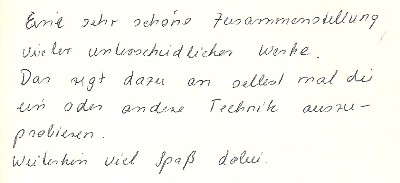 Eine sehr schöne Zusammenstellung
vieler unterschiedlicher Werke.
Das regt dazu an selbst mal die
ein oder andere Technik auszu-
probieren.
Weiterhin viel Spaß dabei.